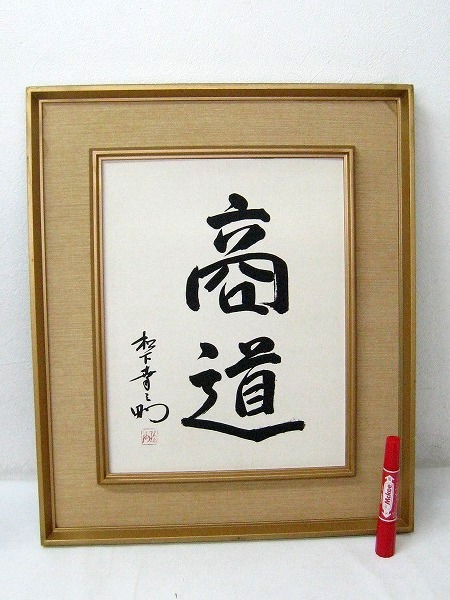 商道
松下幸之助
Mckee